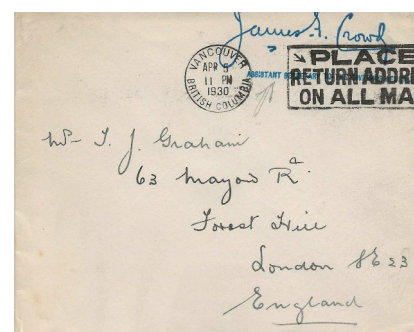 James F. Crowd
VANCOUVER
APR 5
11 PM
1930
BRITISH COLUMBIA
PLACE
RETURN ADDRE
ON ALL MA
ASSISTANT
Mr T. J. Graham
63 Mayow Rd
Forest Hill
London SE 23
England